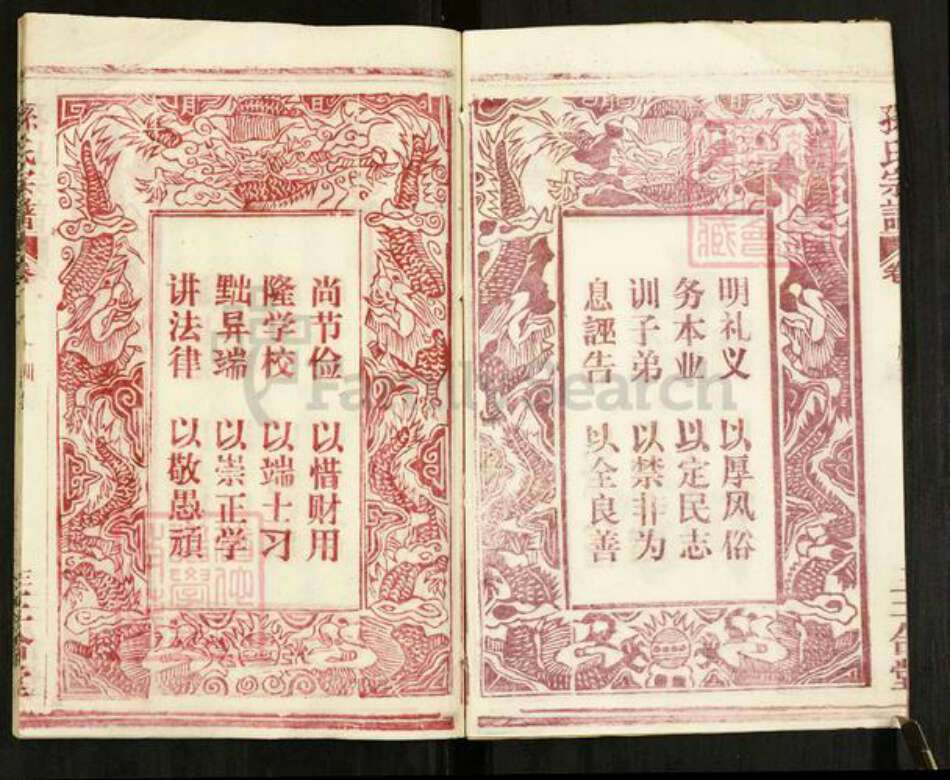 孫氏宗譜
卷
明礼义 以厚风俗
务本业 以定民志
训子弟 以禁非为
息誣告 以全良善
尚节俭 以惜财用
隆学校 以端士习
黜异端 以崇正学
讲法律 以敬愚頑
孫氏宗譜
卷
FamilySearch